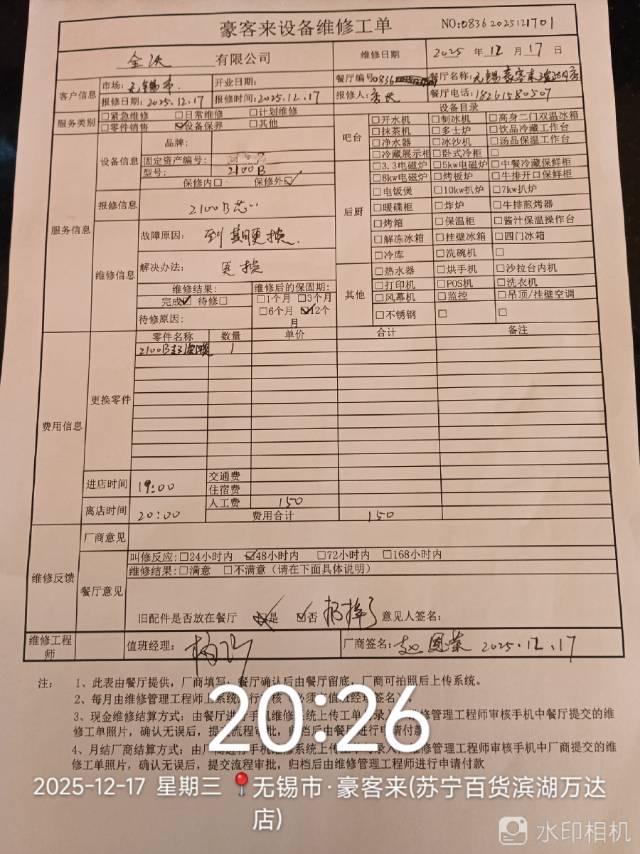 豪客来设备维修工单 NO:08362025121701
有限公司 维修日期 2025年12月17日
客户信息 市场:无锡市 开业日期: 餐厅编号:0836 餐厅名称:
报修日期:2025.12.17 报修时间:2025.12.17 报修人:店长 餐厅电话:18261580507
服务类别 □紧急维修 □日常维修 □计划维修 设备目录
□零件销售 ☑设备保养 □其他
服务信息 设备信息 品牌:
固定资产编号:
型号: 2100B
保修内□ 保修外☑
报修信息 2100B芯
维修信息 故障原因: 到期更换.
解决办法: 更换
维修结果: 维修后的保固期:
完成☑ 待修□ □1个月 □3个月
待修原因: □6个月 ☑12个月
吧台 □开水机 □制冰机 □高身二门双温冰箱
□抹茶机 □多士炉 □饮品冷藏工作台
□净水器 □冰沙机 □汤品保温工作台
□冷藏展示柜 □卧式冷柜 □
后厨 □3.3电磁炉 □5kw电磁炉 □中餐冷藏保鲜柜
□8kw电磁炉 □烤板炉 □牛排开口保鲜柜
□电饭煲 □10kw扒炉 □7kw扒炉
□暖碟柜 □炸炉 □牛排煎烤器
□烤箱 □保温柜 □酱汁保温操作台
□解冻冰箱 □挂壁冰箱 □四门冰箱
□冷库 □洗碗机 □
其他 □热水器 □烘手机 □沙拉台内机
□打印机 □POS机 □洗衣机
□风幕机 □监控 □吊顶/挂壁空调
□不锈钢 □ □
费用信息 更换零件 零件名称 数量 单价 合计 备注
2100B 1
进店时间 19:00 交通费
住宿费
离店时间 20:00 人工费 150
费用合计 150
维修反馈 厂商意见
餐厅意见 叫修反应:□24小时内 ☑48小时内 □72小时内 □168小时内
维修结果:□满意 □不满意(请在下面具体说明)
旧配件是否放在餐厅 □是 ☑否 扔掉了 意见人签名:
维修工程师 值班经理: 厂商签名: 2025.12.17
注: 1、此表由餐厅提供,厂商填写;餐厅确认后由餐厅留底,厂商可拍照后上传系统。
2、每月由维修管理工程师上系统
3、现金维修结算方式:由餐厅
维修管理工程师审核手机中餐厅提交的维修工单照片,确认无误后,提交流程审批,归档后由餐厅进行申请付款
4、月结厂商结算方式:由厂商
维修管理工程师审核手机中厂商提交的维修工单照片,确认无误后,提交流程审批,归档后由维修管理工程师进行申请付款
20:26
2025-12-17 星期三 📍无锡市·豪客来(苏宁百货滨湖万达店)
水印相机